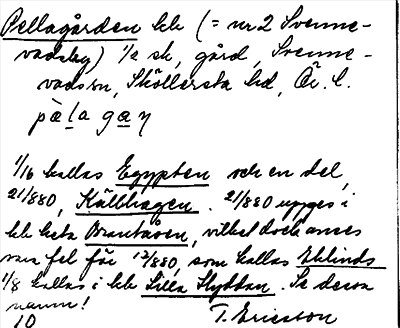 Pellagården kk (= nr 2 Svenne-
vadsby) 1/2 sk, gård, Svenne-
vads sn, Sköllersta hd, Ör. l.
pæ̀la gaṇ
1/16 kallas Egypten och en del,
21/880, Källhagen. 21/880 uppges i
kk heta Brantåsen, vilket dock anses
vara fel för 12/880, som kallas Eklinds
1/8 kallas i kk Lilla Hyttan. Se dessa
namn!
10 T. Ericsson